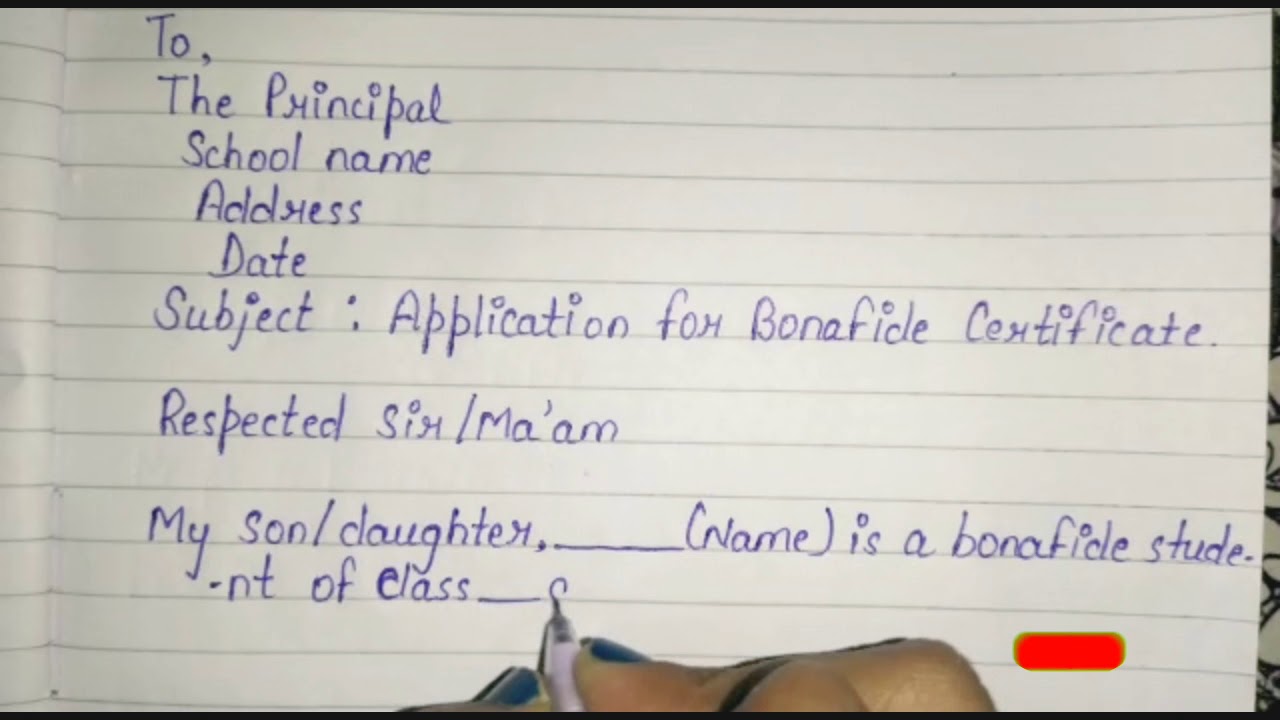 To,
The Principal
School name
Address
Date
Subject : Application for Bonafide Certificate.
Respected Sir/Ma'am
My son/daughter, _____ (Name) is a bonafide stude-
-nt of class __